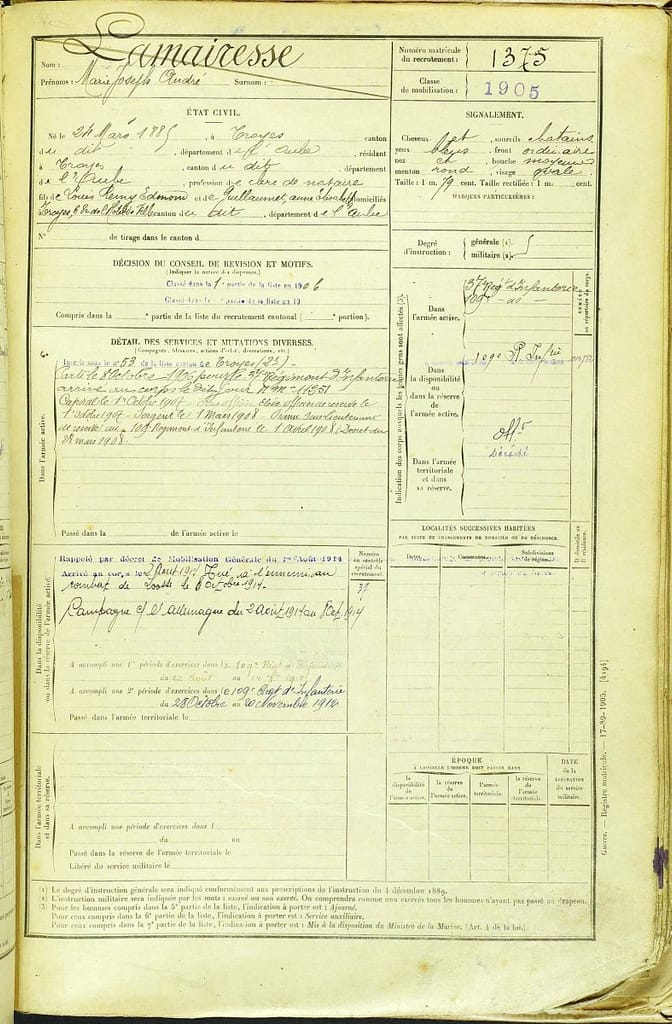 Nom : Lamairesse
Prénoms : Marie Joseph André Surnom :
Numéro matricule du recrutement : 1375
Classe de mobilisation : 1905
ÉTAT CIVIL.
Né le 24 Mars 1885, à Troyes canton
du dit, département de l'Aube, résidant
à Troyes, canton du dit, département
de l'Aube, profession de clerc de notaire
fils de Louis Remy Edmond et de Guillaumet, domiciliés
Troyes, canton du dit, département de l'Aube
N° de tirage dans le canton d
SIGNALEMENT.
Cheveux et sourcils chatains
yeux bleus, front ordinaire
nez et bouche moyens
menton rond visage ovale
Taille : 1 m. 79 cent. Taille rectifiée : 1 m. cent.
MARQUES PARTICULIÈRES :
Degré d'instruction : générale (1). militaire (2).
DÉCISION DU CONSEIL DE REVISION ET MOTIFS.
(Indiquer la nature des dispenses.)
Classé dans la 1e partie de la liste en 1906
Classé dans la partie de la liste en 19
Compris dans la partie de la liste du recrutement cantonal ( portion).
DÉTAIL DES SERVICES ET MUTATIONS DIVERSES.
(Campagnes, blessures, actions d'éclat, décorations, etc.)
Inscrit sous le n° 53 de la liste canton de Troyes (2e)
Parti le 8 Octobre 1906 pour le 37e Régiment d'Infanterie
arrivé au corps le dit jour N° Mle 11351
Caporal le 1er Octobre 1907 Elève officier de reserve le
1er Octobre 1907 - Sergent le 1 Mars 1908 - Sous Lieutenant
de reserve au 109e Régiment d'Infanterie le 1 Avril 1908 (Décret du
28 mars 1908
Passé dans la de l'armée active le
Dans l'armée active.
Indication des corps auxquels les jeunes gens sont affectés (3).
Dans l'armée active.
37e Régt d'Infanterie
109e - do -
NUMÉRO au répertoire du corps.
Dans la disponibilité ou dans la réserve de l'armée active.
109e R. Infrie
Offr
Décédé
Dans l'armée territoriale et dans sa réserve.
LOCALITÉS SUCCESSIVES HABITÉES
PAR SUITE DE CHANGEMENTS DE DOMICILE OU DE RÉSIDENCE.
Dates. Communes. Subdivisions de région. D domicile ou R résidence.
Dans la disponibilité ou dans la réserve de l'armée active.
Rappelé par décret de Mobilisation Générale du 1er Août 1914
Arrivé au corps le 2 Août 1914 Tué à l'ennemi au
combat de Loos le 8 Octobre 1914.
Campagne c/ l'Allemagne du 2 août 1914 au 8 Oct 1914
Numéro au contrôle spécial du recrutement.
37
A accompli une 1re période d'exercices dans le 109e Régt d'Infanterie
du 22 Août au
A accompli une 2e période d'exercices dans le 109e Régt d'Infanterie
du 28 Octobre au 20 Novembre 1912
Passé dans l'armée territoriale le
ÉPOQUE
À LAQUELLE L'HOMME DOIT PASSER DANS
la disponibilité de l'armée active. la réserve de l'armée active. l'armée territoriale. la réserve de l'armée territoriale.
DATE de la LIBÉRATION du service militaire.
Dans l'armée territoriale et dans sa réserve.
A accompli une période d'exercices dans l
du au
Passé dans la réserve de l'armée territoriale le
Libéré du service militaire le
(1) Le degré d'instruction générale sera indiqué conformément aux prescriptions de l'instruction du 4 décembre 1889.
(2) L'instruction militaire sera indiquée par les mots : exercé ou non exercé. On comprendra comme non exercés tous les hommes n'ayant pas passé au drapeau.
(3) Pour les hommes compris dans la 5e partie de la liste, l'indication à porter est : Ajourné.
Pour ceux compris dans la 6e partie de la liste, l'indication à porter est : Service auxiliaire.
Pour ceux compris dans la 7e partie de la liste, l'indication à porter est : Mis à la disposition du Ministre de la Marine. (Art. 4 de la loi.)
Guerre. — Registre matricule. — 17-89-1905. [4194]